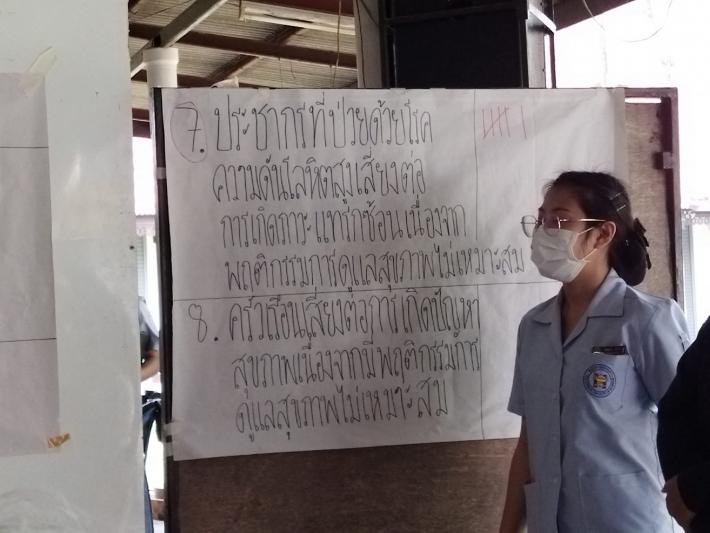 7. ประชากรที่ป่วยด้วยโรค
ความดันโลหิตสูงเสี่ยงต่อ
การเกิดภาวะแทรกซ้อนเนื่องจาก
พฤติกรรมการดูแลสุขภาพไม่เหมาะสม
8. ครัวเรือนเสี่ยงต่อการเกิดปัญหา
สุขภาพเนื่องจากมีพฤติกรรมการ
ดูแลสุขภาพไม่เหมาะสม